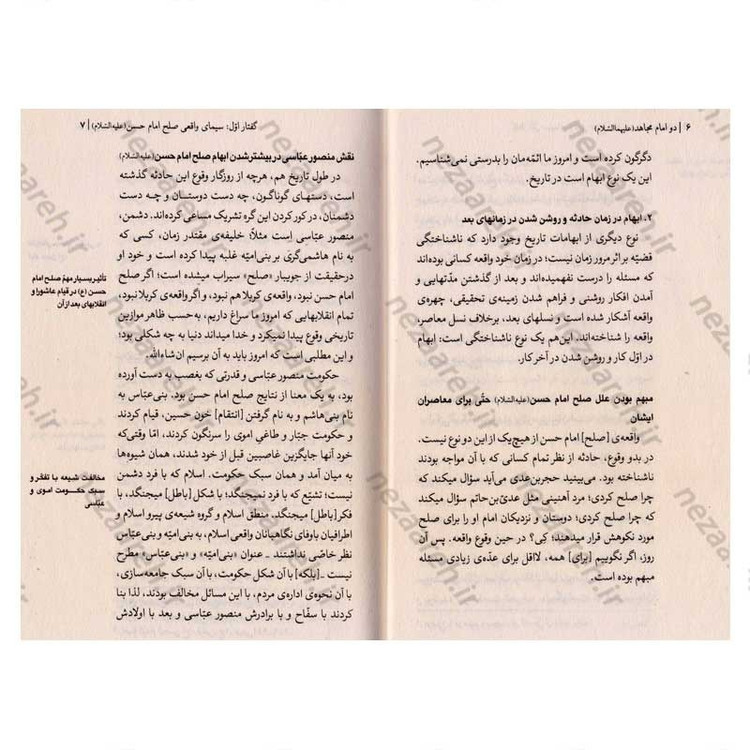 ۶ | دو امام مجاهد (علیهما‌السّلام)
دگرگون کرده است و امروز ما ائمّه‌مان را بدرستی نمی‌شناسیم.
این یک نوع ابهام است در تاریخ.
۲. ابهام در زمان حادثه و روشن شدن در زمانهای بعد
نوع دیگری از ابهامات تاریخ وجود دارد که ناشناختگی
قضیّه بر اثر مرور زمان نیست؛ در زمان خود واقعه کسانی بوده‌اند
که مسئله را درست نفهمیده‌اند و بعد از گذشتن مدّتهایی و
آمدن افکار روشنی و فراهم شدن زمینه‌ی تحقیقی، چهره‌ی
واقعه آشکار شده است و نسلهای بعد، برخلاف نسل معاصر،
واقعه را شناخته‌اند. این هم یک نوع ناشناختگی است؛ ابهام
در اوّل کار و روشن شدن در آخر کار.
مبهم بودن علل صلح امام حسن (علیه‌السّلام) حتّی برای معاصران
ایشان
واقعه‌ی [صلح] امام حسن از هیچ یک از این دو نوع نیست.
در بدو وقوع، حادثه از نظر تمام کسانی که با آن مواجه بودند
ناشناخته بود. می‌بینید حجربن‌عدی می‌آید سؤال میکند که
چرا صلح کردی؛ مرد آهنینی مثل عدیّ‌بن‌حاتم سؤال میکند
که چرا صلح کردی؛ دوستان و نزدیکان امام او را برای صلح
مورد نکوهش قرار میدهند؛ کِی؟ در حین وقوع واقعه. پس آن
روز، اگر نگوییم [برای] همه، لااقل برای عدّه‌ی زیادی مسئله
مبهم بوده است.
گفتار اوّل: سیمای واقعی صلح امام حسن (علیه‌السّلام) | ۷
نقش منصور عبّاسی در بیشتر شدن ابهام صلح امام حسن (علیه‌السّلام)
در طول تاریخ هم، هرچه از روزگار وقوع این حادثه گذشته
است، دستهای گوناگون، چه دست دوستان و چه دست
دشمنان، در کور کردن این گره تشریک مساعی کرده‌اند. دشمن،
منصور عبّاسی است مثلاً؛ خلیفه‌ی مقتدر زمان، کسی که
به نام هاشمی‌گری بر بنی‌امیّه غلبه پیدا کرده است و خود او
درحقیقت از جویبار «صلح» سیراب میشده است؛ اگر صلح
امام حسن نبود، واقعه‌ی کربلا هم نبود، و اگر واقعه‌ی کربلا نبود،
تمام انقلابهایی که امروز ما سراغ داریم، به‌حسب ظواهر موازین
تاریخی وقوع پیدا نمیکرد و خدا میداند دنیا به چه شکلی بود؛
و این مطلبی است که امروز باید به آن برسیم ان‌شاءالله.
حکومت منصور عبّاسی و قدرتی که بغصب به دست آورده
بود، به یک معنا از نتایج صلح امام حسن بود. بنی‌عبّاس به
نام بنی‌هاشم و به نام گرفتن [انتقام] خون حسین، قیام کردند
و حکومت جبّار و طاغی اموی را سرنگون کردند، امّا وقتی‌که
خود آنها جایگزین غاصبین قبل از خود شدند، همان شیوه‌ها
به میان آمد و همان سبک حکومت. اسلام که با فرد دشمن
نیست؛ تشیّع که با فرد نمیجنگد؛ با شکل [باطل] میجنگد، با
فکر [باطل] میجنگد. منطق اسلام و گروه شیعه‌ی پیرو اسلام و
اطرافیان باوفای نگاهبانان واقعی اسلام، به بنی‌امیّه و بنی‌عبّاس
نظر خاصّی نداشتند ـ عنوان «بنی‌امیّه» و «بنی‌عبّاس» مطرح
نیست ـ [بلکه] با آن شکل حکومت، با آن سبک جامعه‌سازی،
با آن نحوه‌ی اداره‌ی مردم، با این مسائل مخالف بودند، لذا بنا
کردند با سفّاح و با برادرش منصور عبّاسی و بعد با اولادش
تأثیر بسیار مهمّ صلح امام
حسن (ع) در قیام عاشورا و
انقلابهای بعد از آن
مخالفت شیعه با تفکّر و
سبک حکومت اموی و
عبّاسی
nezaareh.ir